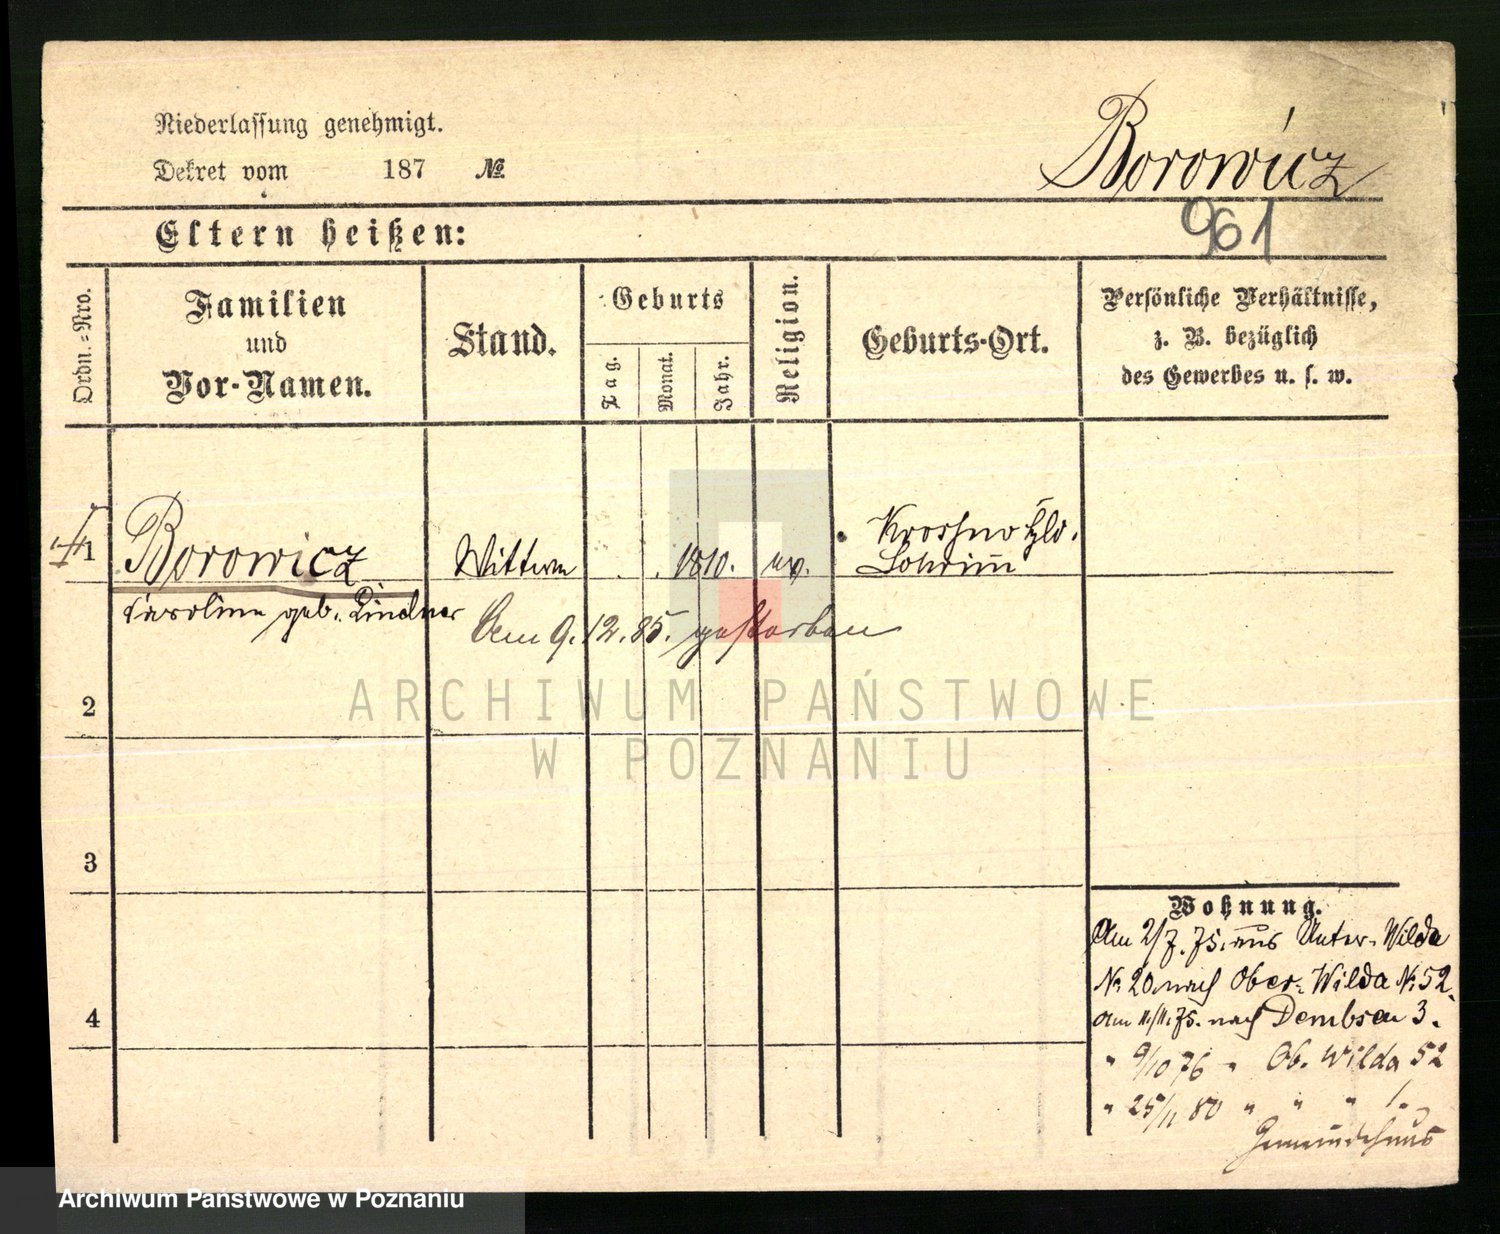 Niederlassung genehmigt.
Dekret vom 187 №
Borowicz
961
Eltern heißen:
Ordn.=Nro.
Familien
und
Vor-Namen.
Stand.
Geburts
Tag.
Monat.
Jahr.
Religion.
Geburts-Ort.
Persönliche Verhältnisse,
z. B. bezüglich
des Gewerbes u. s. w.
1 Borowicz Wittwe 1810. ev. Krossno Hld.
Caroline geb. Lindner
Am 9. 12. 85. gestorben
2
3
4
Wohnung.
Am 2/7. 75. aus Unter-Wilda
No 20 nach Ober-Wilda No 52.
am 11/11. 75. nach Dembsen 3.
" 9/10 76 " Ob. Wilda 52
" 25/11 80 " " " 1.
Gemeindehaus
ARCHIWUM PAŃSTWOWE
W POZNANIU
Archiwum Państwowe w Poznaniu